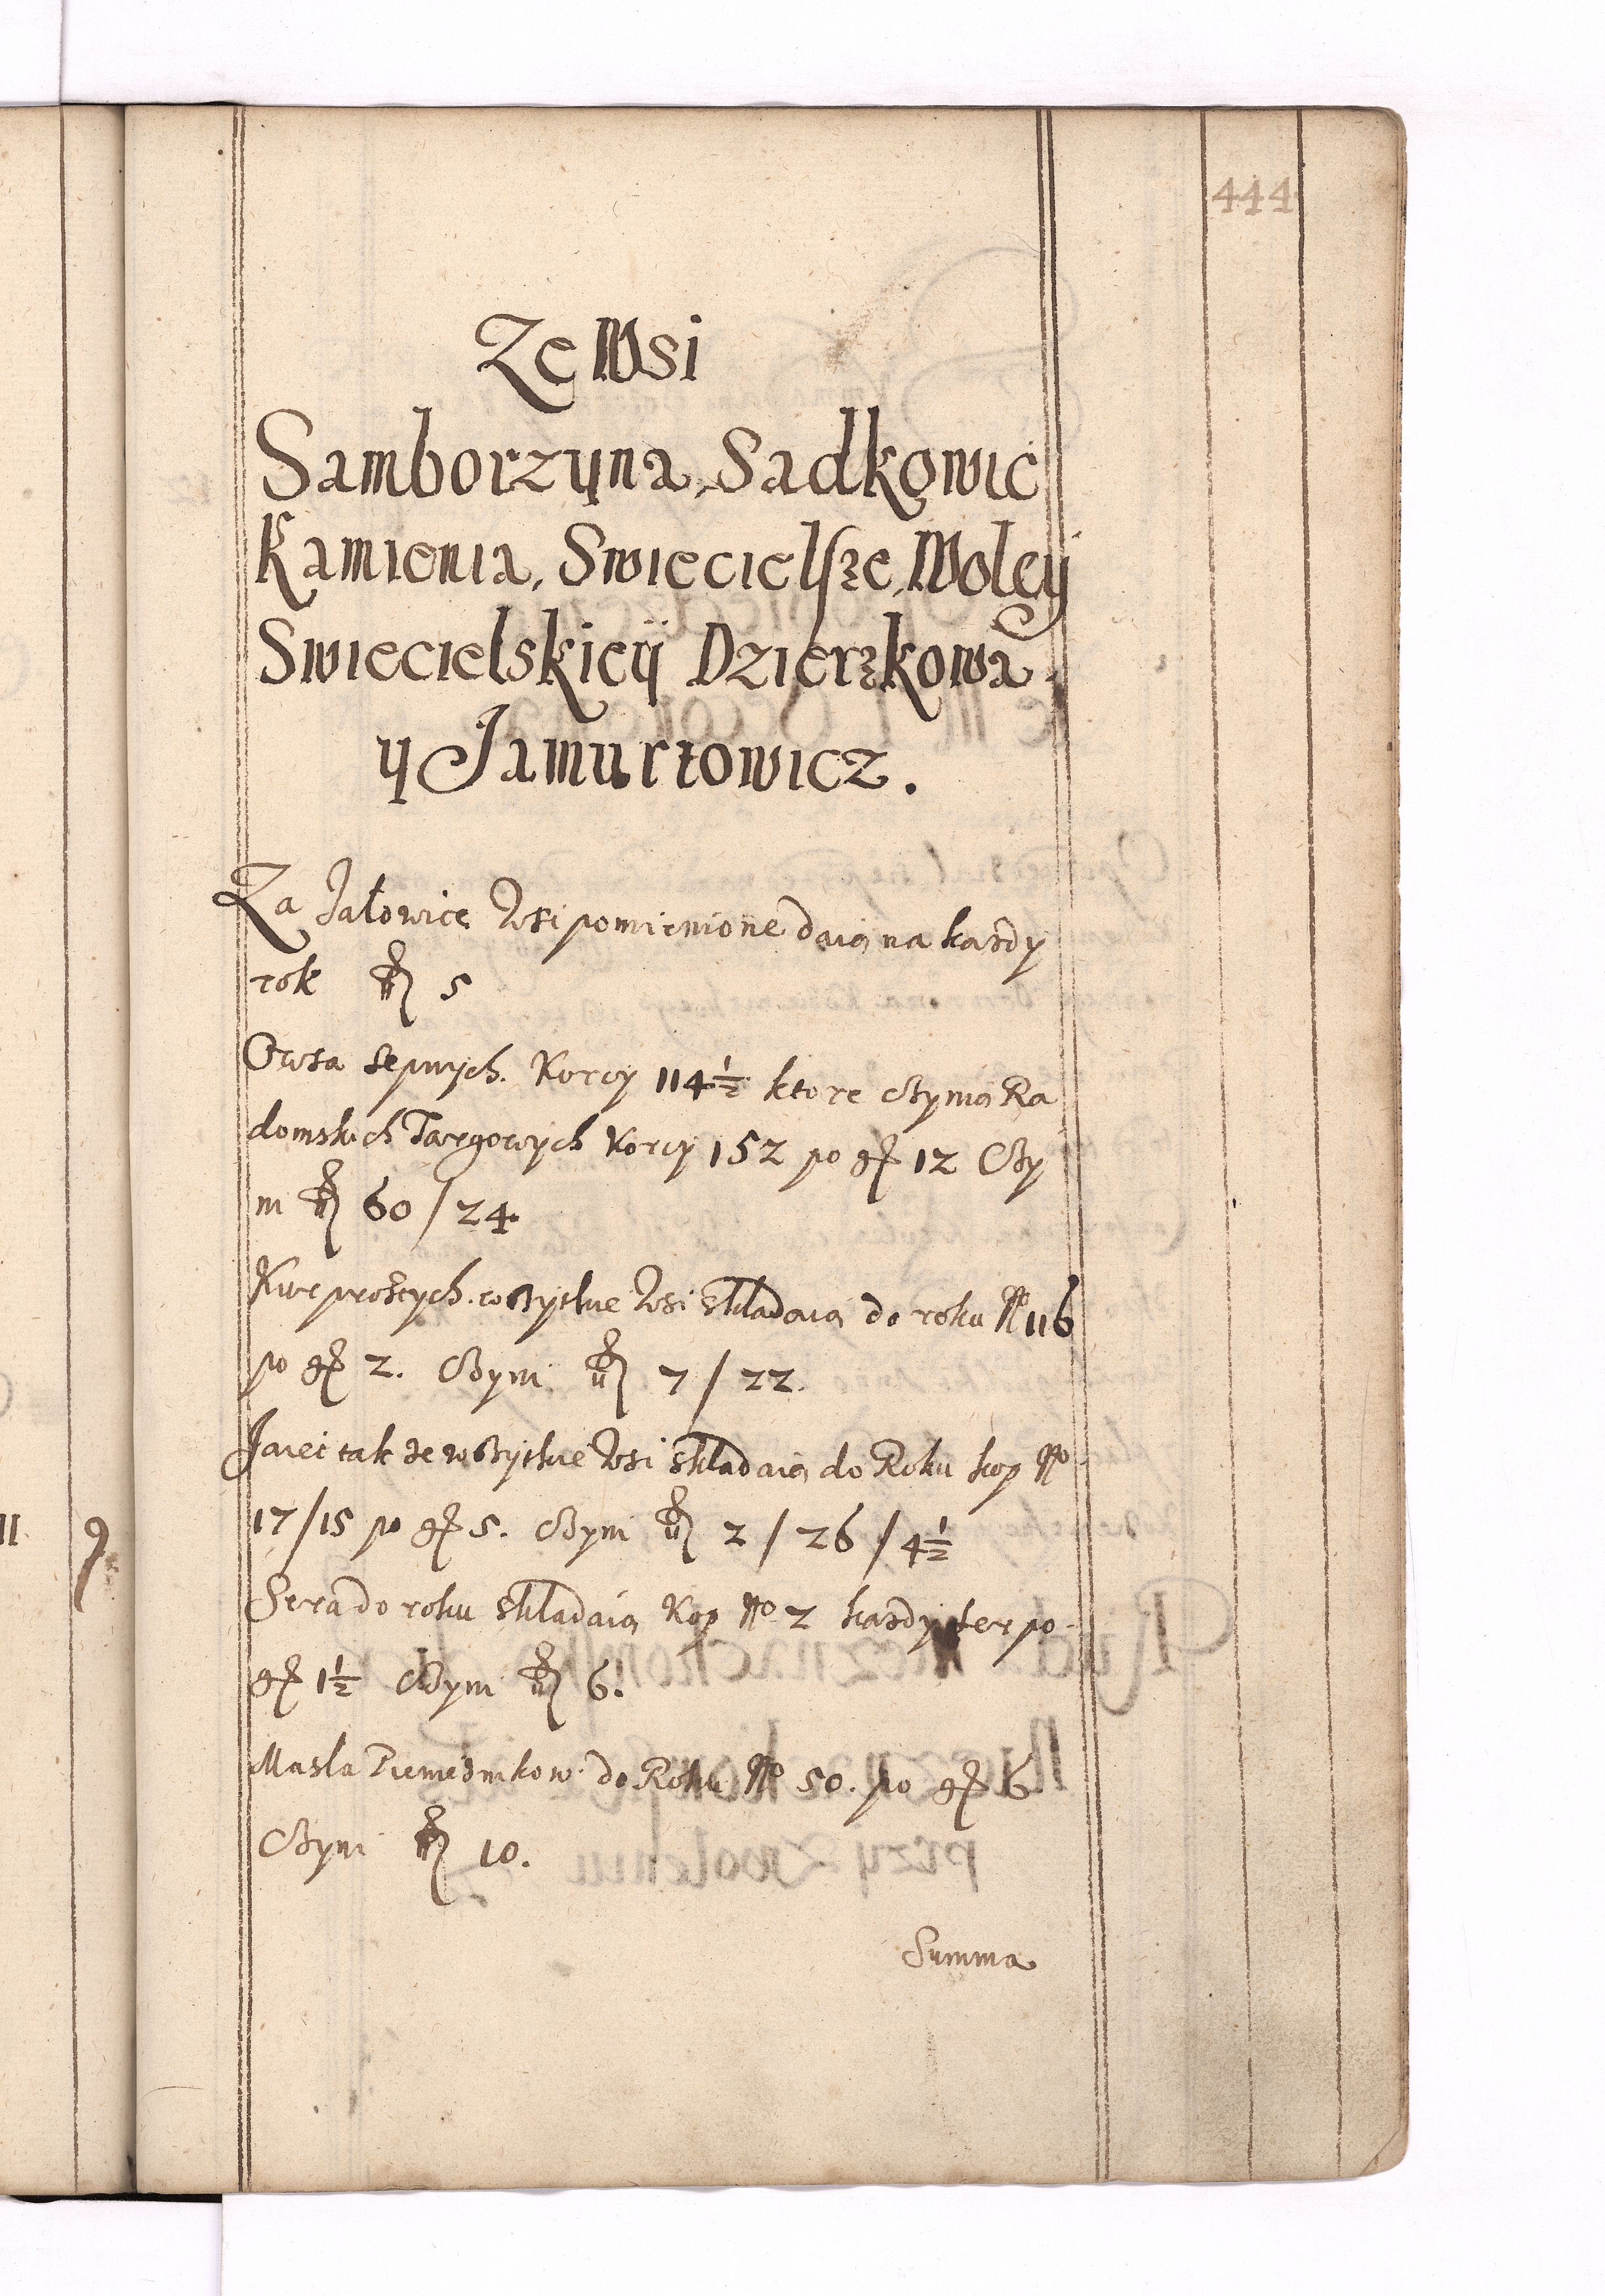 444
Ze Wsi
Samborzyna, Sadkowic
Kamienia, Swiecielsze, Woley
Swiecielskiey Dzierzkowa
y Jamurtowicz.
Za Jałowice Wsi pomienione daią na kazdy
rok fl 5
Owsa sepnych Korcy 114½ ktore czynią Ra
domskich Targowych Korcy 152 po gr 12 Czy
ni fl 60/24
Kur prostych wszytkie Wsi składaią do roku No 116
po gr 2. Czyni fl 7/22.
Jaiec takze wszytkie Wsi składaią do Roku kop No
17/15 po gr 5. Czyni fl 2/26/4½
Sera do roku składaią Kop No 2 kazdy ser po
gr 1½ Czyni fl 6.
Masla do Roku No 50. po gr 6
Czyni fl 10.
Summa